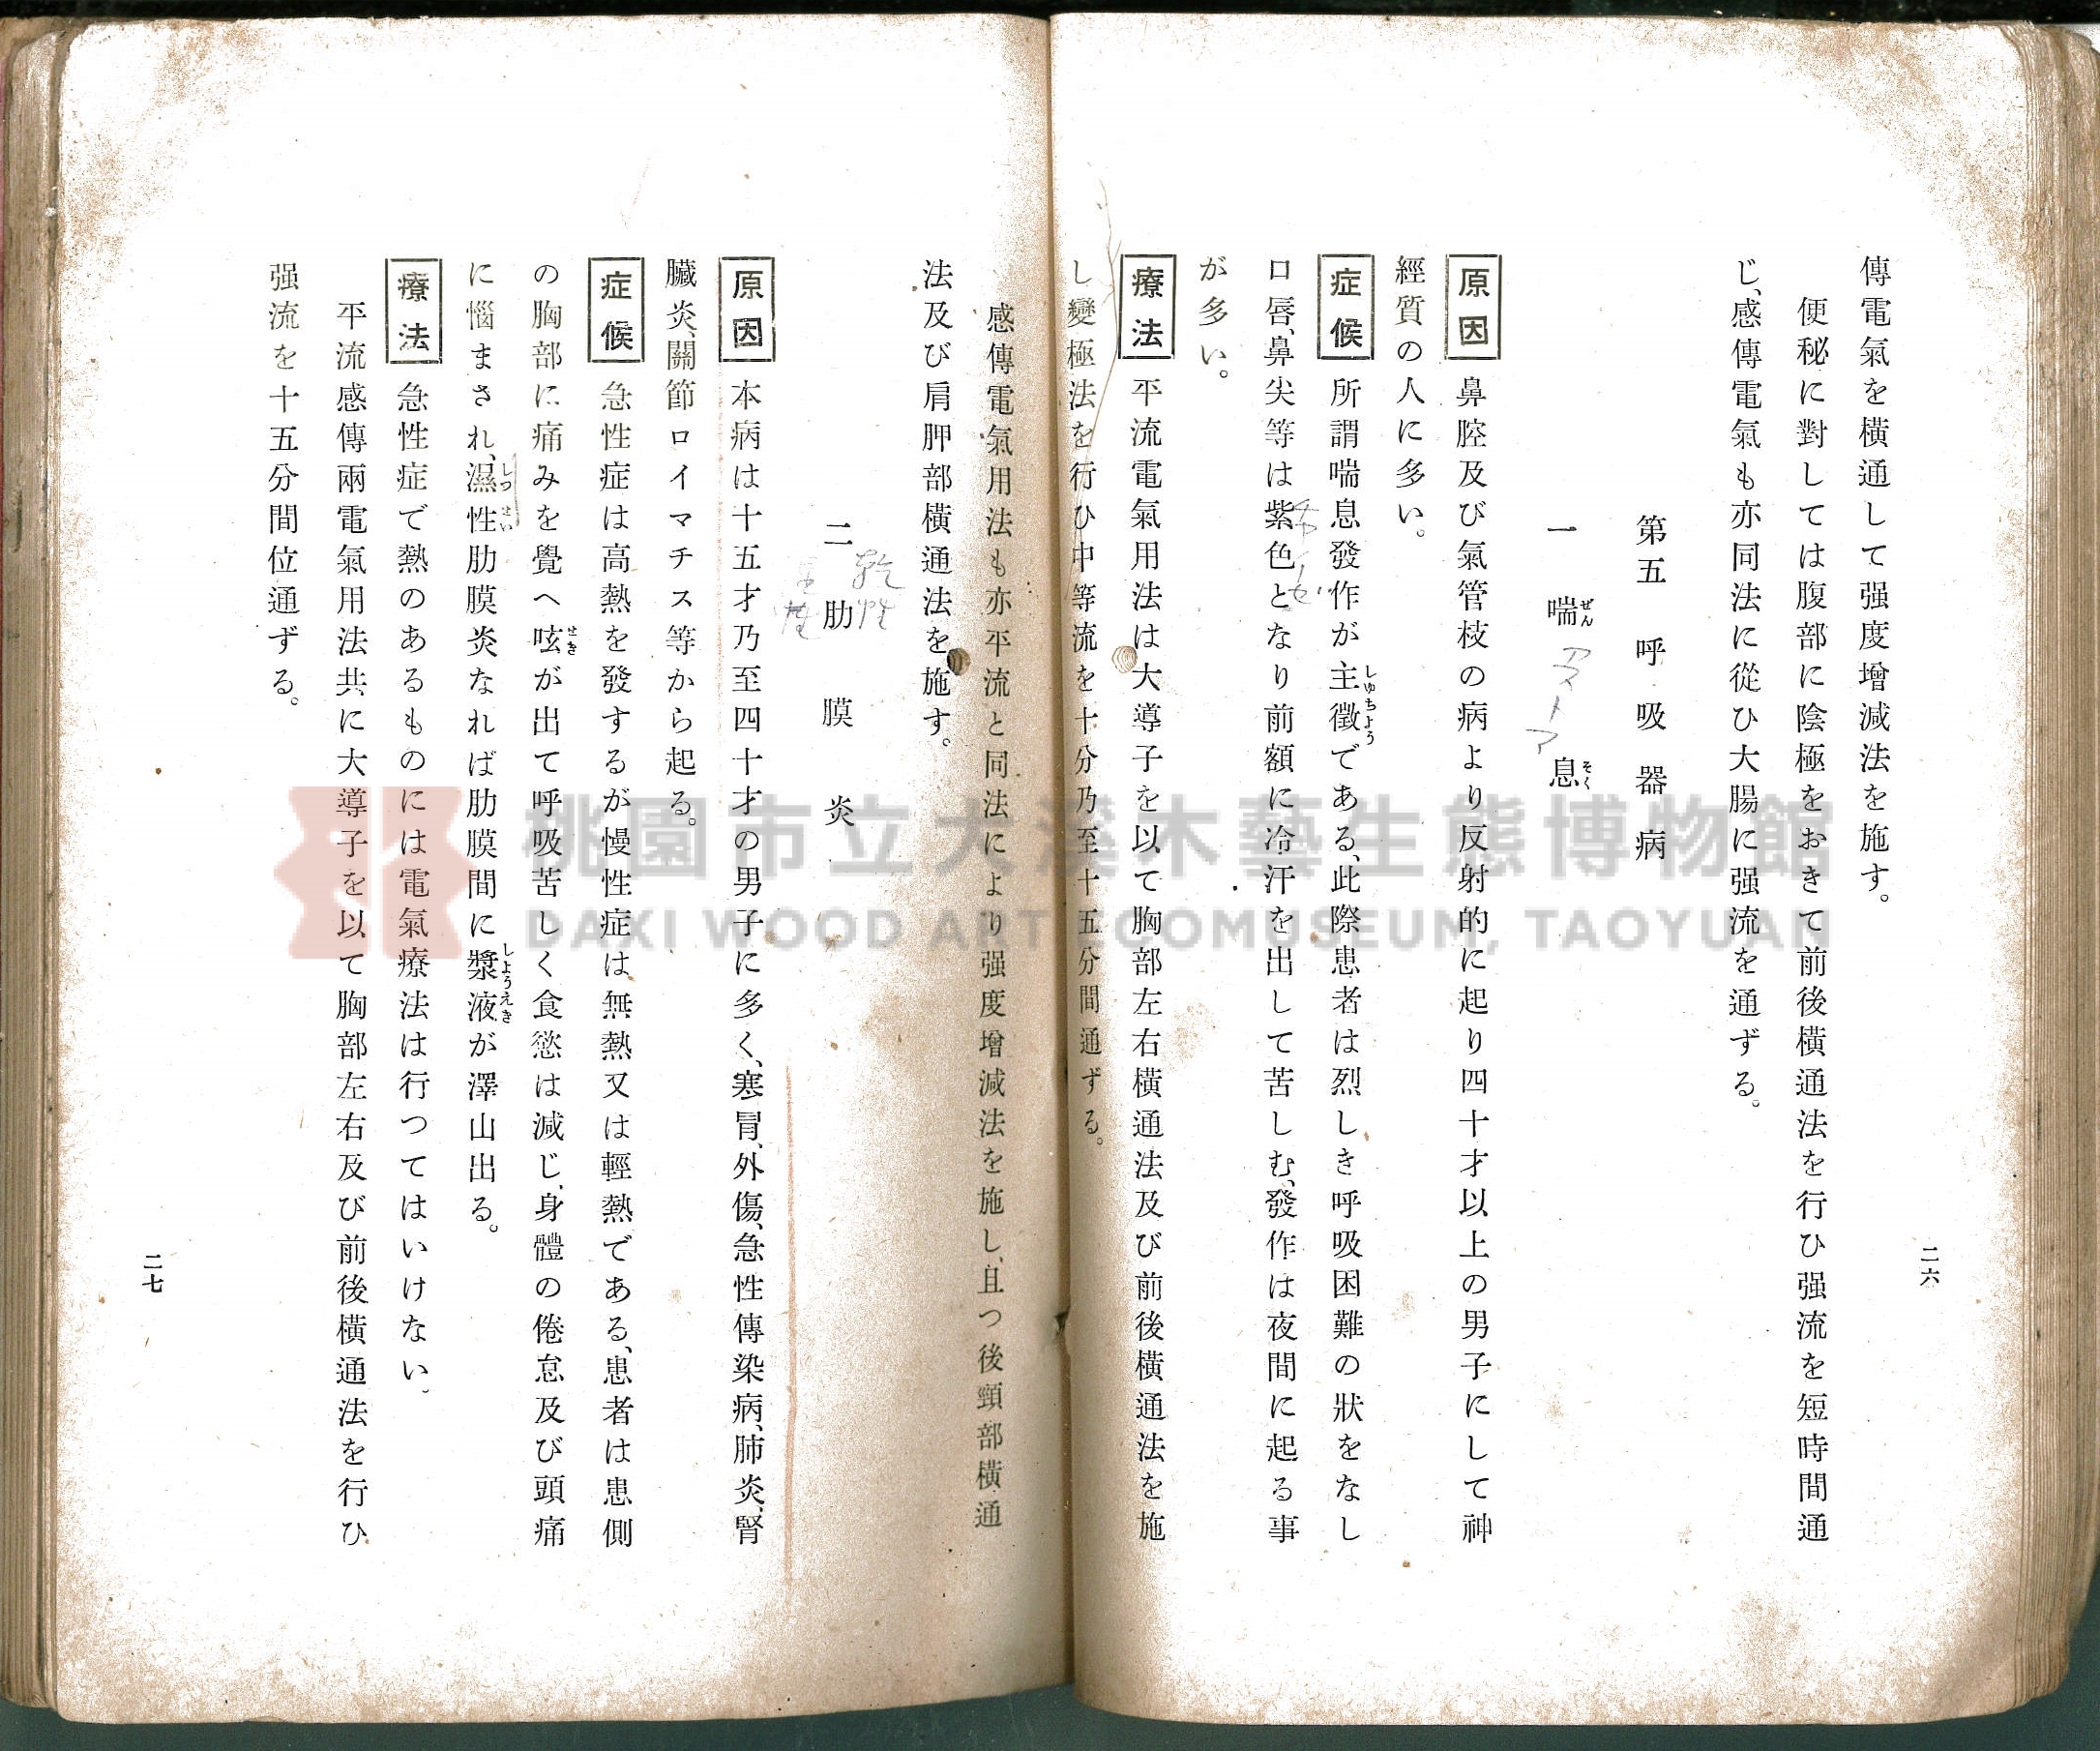 傳電氣を橫通して强度增減法を施す。
便秘に對しては腹部に陰極をおきて前後橫通法を行ひ强流を短時間通
じ、感傳電氣も亦同法に從ひ大腸に强流を通ずる。
第五　呼吸器病
一　喘息
ぜん　そく
アストマ
原因　鼻腔及び氣管枝の病より反射的に起り四十才以上の男子にして神
經質の人に多い。
症候　所謂喘息發作が主徵である、此際患者は烈しき呼吸困難の狀をなし
しゆちよう
口唇、鼻尖等は紫色となり前額に冷汗を出して苦しむ、發作は夜間に起る事
が多い。
療法　平流電氣用法は大導子を以て胸部左右橫通法及び前後橫通法を施
し變極法を行ひ中等流を十分乃至十五分間通ずる。
二六
感傳電氣用法も亦平流と同法により强度增減法を施し、且つ後頸部橫通
法及び肩胛部橫通法を施す。
乾性
二　肋膜炎
原因　本病は十五才乃至四十才の男子に多く、寒冒、外傷、急性傳染病、肺炎、腎
臟炎、關節ロイマチス等から起る。
症候　急性症は高熱を發するが慢性症は無熱又は輕熱である、患者は患側
の胸部に痛みを覺へ咳が出て呼吸苦しく食慾は減じ、身體の倦怠及び頭痛
せき
に惱まされ、濕性肋膜炎なれば肋膜間に漿液が澤山出る。
しつせい　しようえき
療法　急性症で熱のあるものには電氣療法は行つてはいけない。
平流感傳兩電氣用法共に大導子を以て胸部左右及び前後橫通法を行ひ
强流を十五分間位通ずる。
二七
桃園市立大溪木藝生態博物館
DAXI WOOD ART ECOMUSEUM, TAOYUAN